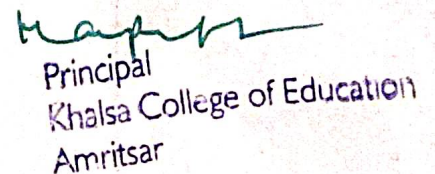 Principal
Khalsa College of Education
Amritsar